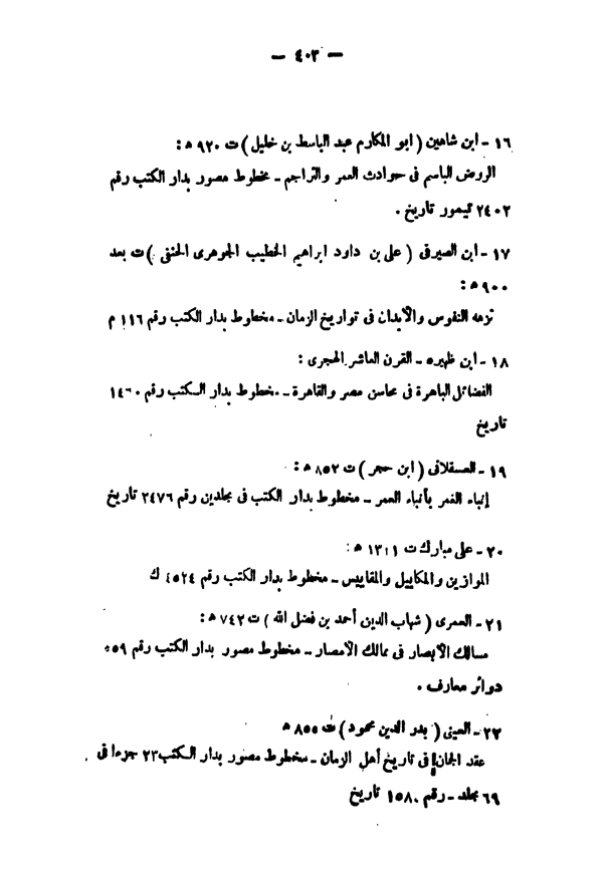 — ٤٠٣ —
١٦ - ابن شاهين ( ابو المكارم عبد الباسط بن خليل ) ت ٩٢٠ ه :
الروض الباسم فى حوادث العمر والتراجم - مخطوط مصور بدار الكتب رقم
٢٤٠٢ تيمور تاريخ .
١٧ - ابن الصيرفى ( على بن داود ابراهيم الخطيب الجوهرى الحنفى ) ت بعد
٩٠٠ ه :
نزهه النفوس والأبدان فى تواريخ الزمان - مخطوط بدار الكتب رقم ١١٦ م
١٨ - ابن ظهيره - القرن العاشر الهجرى :
الفضائل الباهرة فى محاسن مصر والقاهرة - مخطوط بدار الكتب رقم
تاريخ
١٩ - العسقلانى ( ابن حجر ) ت ٨٥٢ ه :
إنباء الغمر بأنباء العمر - مخطوط بدار الكتب فى مجلدين رقم ٢٤٧٦ تاريخ
٢٠ - على مبارك ت ١٣١١ ه :
الموازين والمكاييل والمقاييس - مخطوط بدار الكتب رقم ٤٥٢٤ ك
٢١ - العمرى ( شهاب الدين أحمد بن فضل الله ) ت ٧٤٢ ه :
مسالك الأبصار فى ممالك الامصار - مخطوط مصور بدار الكتب رقم
دوائر معارف .
٢٢ - العينى ( بدر الدين محمود ) ت ٨٥٥ ه
عقد الجمان فى تاريخ أهل الزمان - مخطوط مصور بدار الكتب ٢٣ جزءا فى
٦٩ مجلد - رقم ١٥٨٠ تاريخ